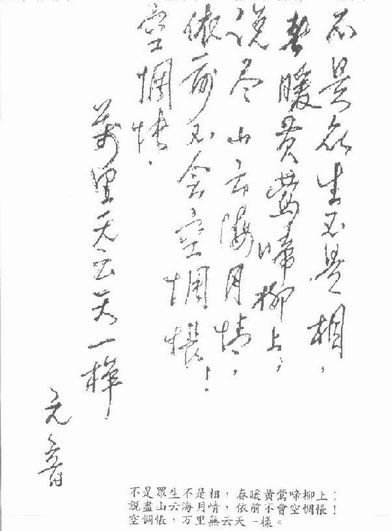 不是众生不是相，
春暖黄莺啼柳上，
说尽山云海月情，
依前不会空惆怅！
空惆怅，
萬里无云天一样
元音
不是眾生不是相，春暖黃鶯啼柳上；
說盡山云海月情，依前不會空惆悵！
空惆悵，万里無云天一樣。